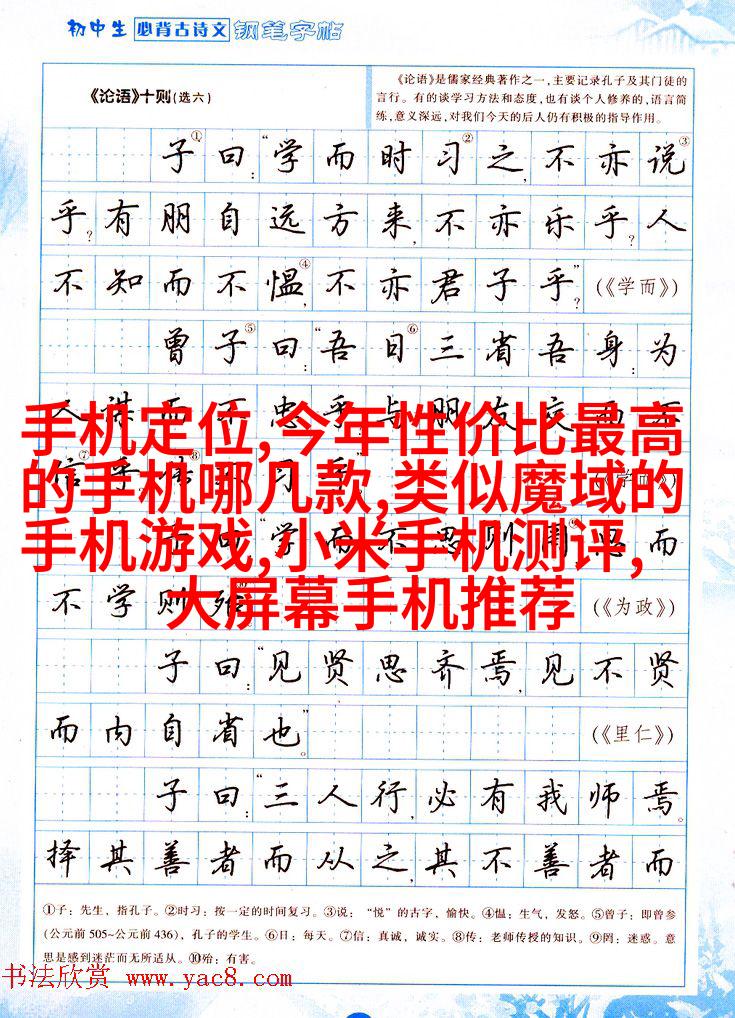 初中生 必背古诗文 钢笔字帖
《论语》十则(选六)
《论语》是儒家经典著作之一,主要记录孔子及其门徒的
言行。有的谈学习方法和态度,也有谈个人修养的,语言简
练,意义深远,对我们今天的后人仍有积极的指导作用。
子①曰:“学而时习②之,不亦说③
乎?有朋自远方来,不亦乐乎?人
不知而不愠④,不亦君子乎?”(《学而》)
曾子⑤曰:“吾日⑥三省吾身:为
人谋而不忠乎?与朋友交而不
信⑦乎?传⑧不习乎?”(《学而》)
手机定位,今年性价比最高
的手机哪几款,类似魔域的
手机游戏,小米手机测评,
大屏幕手机推荐
子曰:“学而不思则罔⑨,思而
不学则殆⑩。”(《为政》)
子曰:“见贤思齐焉,见不贤
而内自省也。”(《里仁》)
子曰:“三人行,必有我师焉。
择其善者而从之,其不善者而
①子:先生,指孔子。②时习:按一定的时间复习。③说:“悦”的古字,愉快。④愠:生气,发怒。⑤曾子:即曾参
(公元前505~公元前436),孔子的学生。⑥日:每天。⑦信:真诚,诚实。⑧传:老师传授的知识。⑨罔:迷惑。意
思是感到迷茫而无所适从。⑩殆:有害。
书法欣赏 www.yac8.com